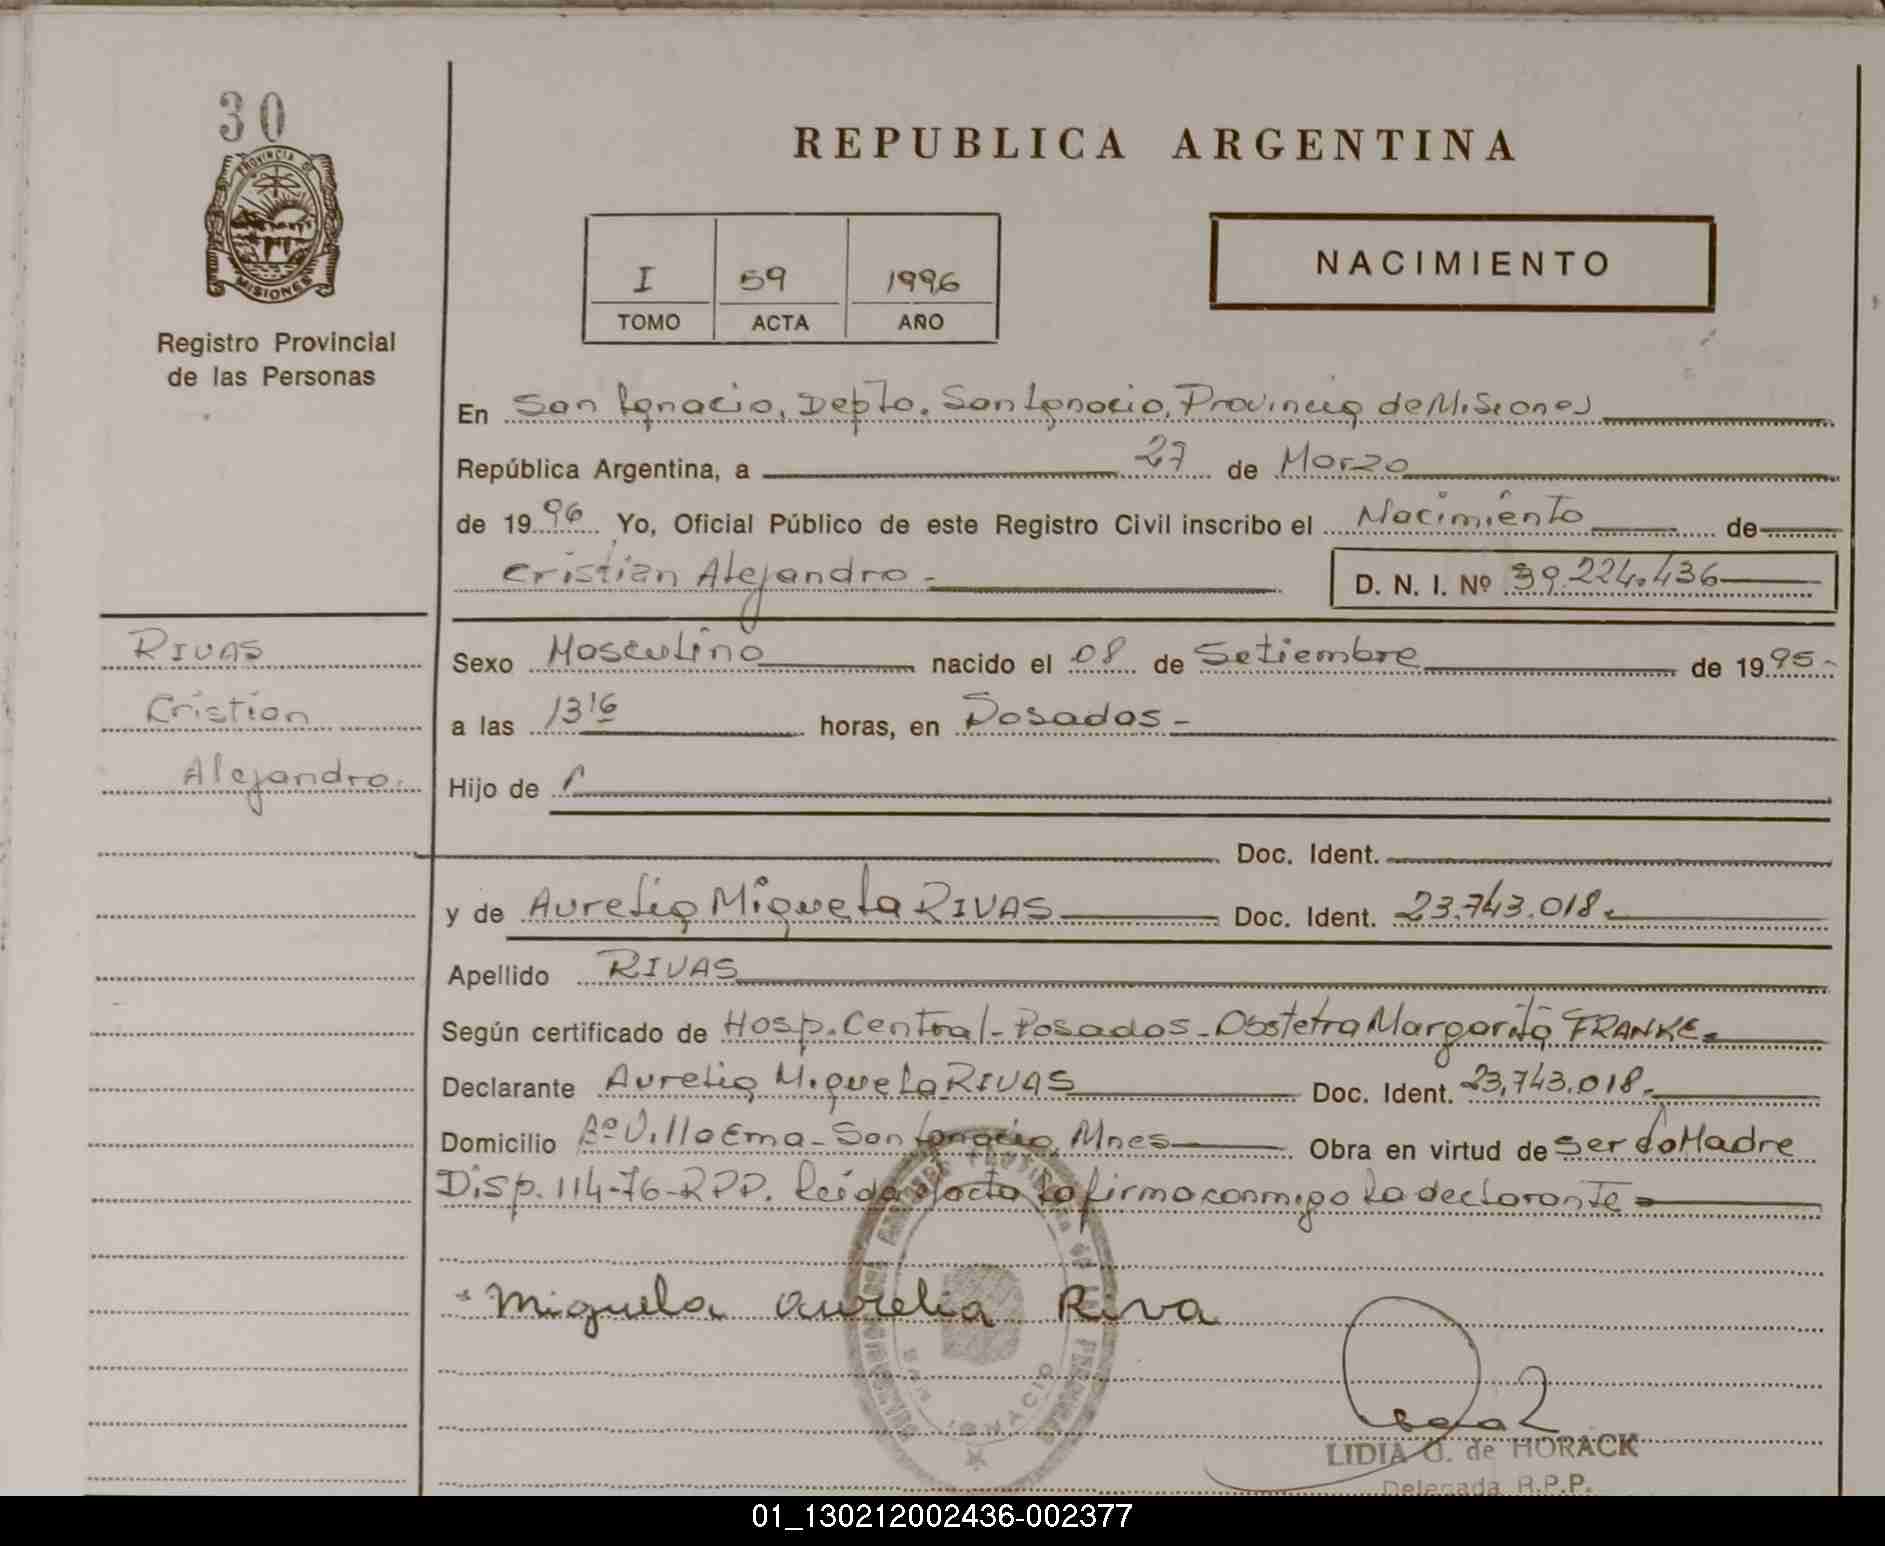 30
PROVINCIA DE
MISIONES
Registro Provincial
de las Personas
REPUBLICA ARGENTINA
I 59 1996
TOMO ACTA AÑO
NACIMIENTO
En San Ignacio, Depto. San Ignacio, Provincia de Misiones
República Argentina, a 27 de Marzo
de 19 96 Yo, Oficial Público de este Registro Civil inscribo el Nacimiento de
Cristian Alejandro - D. N. I. Nº 39.224.436
RIVAS
Cristian
Alejandro.
Sexo Masculino nacido el 08 de Setiembre de 19 95.-
a las 13 16 horas, en Posadas -
Hijo de
Doc. Ident.
y de Aurelia Miguela RIVAS Doc. Ident. 23.743.018.
Apellido RIVAS
Según certificado de Hosp. Central - Posadas - Obstetra Margarita FRANKE.
Declarante Aurelia Miguela RIVAS Doc. Ident. 23.743.018.
Domicilio Bº Villa Ema - San Ignacio, Mnes Obra en virtud de ser la Madre
Disp. 114-76-RPP. Leída el acta la firma conmigo la declarante
Miguela aurelia Riva
IGNACIO
LIDIA G. de HORACK
Delegada R.P.P.
01_130212002436-002377